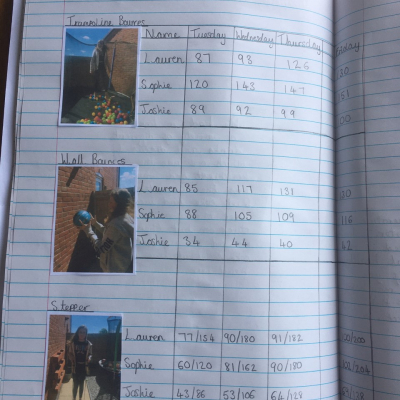 Trampoline Bounces
Name Tuesday Wednesday Thursday
Lauren 87 98 126
Sophie 120 143 147
Joskie 89 92 99
Wall Bounces
Lauren 85 117 131
Sophie 88 105 109 116
Joskie 34 44 40 42
Stepper
Lauren 77/154 90/180 91/182
Sophie 60/120 81/162 90/180
Joskie 43/86 53/106 64/128